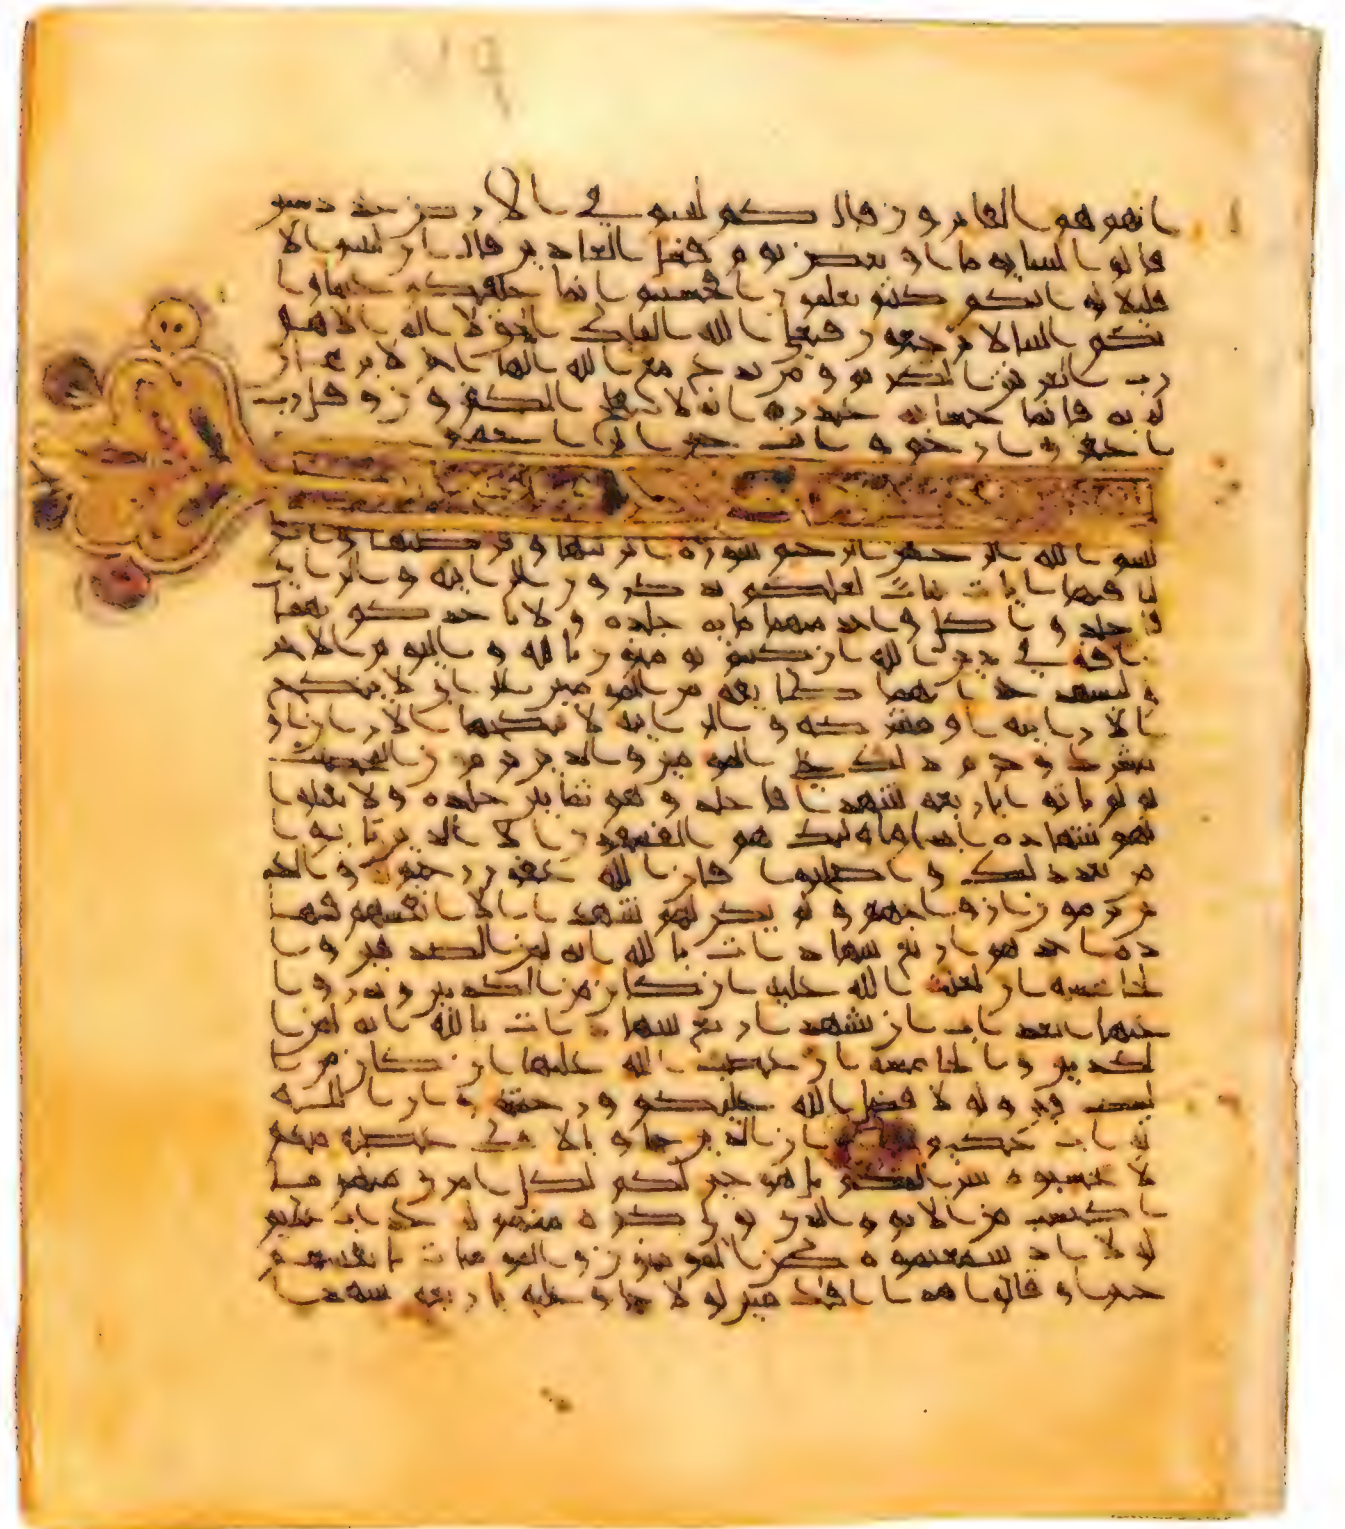 انهم هم الفائزون قال كم لبثتم في الارض عدد سنين
قالوا لبثنا يوما او بعض يوم فسل العادين قال ان لبثتم الا
قليلا لو انكم كنتم تعلمون افحسبتم انما خلقنكم عبثا وا
نكم الينا لا ترجعون فتعلى الله الملك الحق لا اله الا هو
رب العرش الكريم ومن يدع مع الله الها اخر لا برهان
له به فانما حسابه عند ربه انه لا يفلح الكفرون وقل رب
اغفر وارحم وانت خير الرحمين
بسم الله الرحمن الرحيم سورة انزلنها وفرضنها وانز
لنا فيها ايات بينات لعلكم تذكرون الزانية والزاني
فاجلدوا كل واحد منهما مائة جلدة ولا تاخذكم بهما
رافة في دين الله ان كنتم تومنون بالله واليوم الاخر
وليشهد عذابهما طائفة من المومنين الزاني لا ينكح
الا زانية او مشركة والزانية لا ينكحها الا زان او
مشرك وحرم ذلك على المومنين والذين يرمون المحصنت
ثم لم ياتوا باربعة شهدا فاجلدوهم ثمانين جلدة ولا تقبلوا
لهم شهادة ابدا واولئك هم الفسقون الا الذين تابوا
من بعد ذلك واصلحوا فان الله غفور رحيم والذ
ين يرمون ازواجهم ولم يكن لهم شهدا الا انفسهم فشها
دة احدهم اربع شهادات بالله انه لمن الصدقين وا
لخامسة ان لعنت الله عليه ان كان من الكذبين ويدروا
عنها العذاب ان تشهد اربع شهادات بالله انه لمن ا
لكذبين والخامسة ان غضب الله عليها ان كان من ا
لصدقين ولولا فضل الله عليكم ورحمته وان الله
تواب حكيم ان الذين جاو بالافك عصبة منكم
لا تحسبوه شرا لكم بل هو خير لكم لكل امرى منهم ما
اكتسب من الاثم والذي تولى كبره منهم له عذاب عظيم
لولا اذ سمعتموه ظن المومنون والمومنات بانفسهم
خيرا وقالوا هذا افك مبين لولا جاو عليه باربعة شهدا